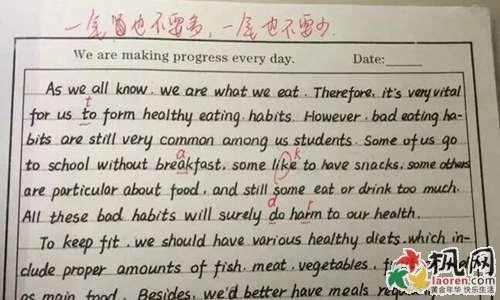 一尾也不要多，一尾也不要少.
We are making progress every day. Date:
As we all know, we are what we eat. Therefore, it's very vital
t
for us to form healthy eating habits. However, bad eating ha-
bits are still very common among us students. Some of us go
a k
to school without breakfast, some like to have snacks, some others
are particular about food, and still some eat or drink too much.
d r
All these bad habits will surely do harm to our health.
To keep fit, we should have various healthy diets, which in-
clude proper amounts of fish, meat, vegetables,
as main food. Besides, we'd better have meals
枫网
laoren.com
黄金年华 快乐生活